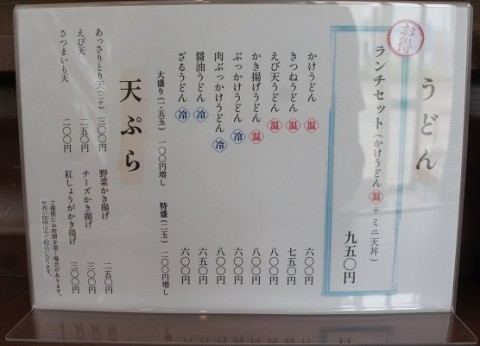 うどん
お得
ランチセット(かけうどん 温 +ミニ天丼) 九五〇円
かけうどん 温 六〇〇円
きつねうどん 温 七五〇円
えび天うどん 温 八〇〇円
かき揚げうどん 温 八〇〇円
ぶっかけうどん 冷 六〇〇円
肉ぶっかけうどん 冷 八〇〇円
醤油うどん 冷 六五〇円
ざるうどん 冷 六〇〇円
大盛り(一・五玉) 一〇〇円増し 特盛(二玉) 二〇〇円増し
天ぷら
あっさりとり天 三〇〇円
えび天 二五〇円
さつまいも天 二〇〇円
野菜かき揚げ 二五〇円
チーズかき揚げ 三〇〇円
紅しょうがかき揚げ 二〇〇円
ご提供にお時間を頂く場合があります。